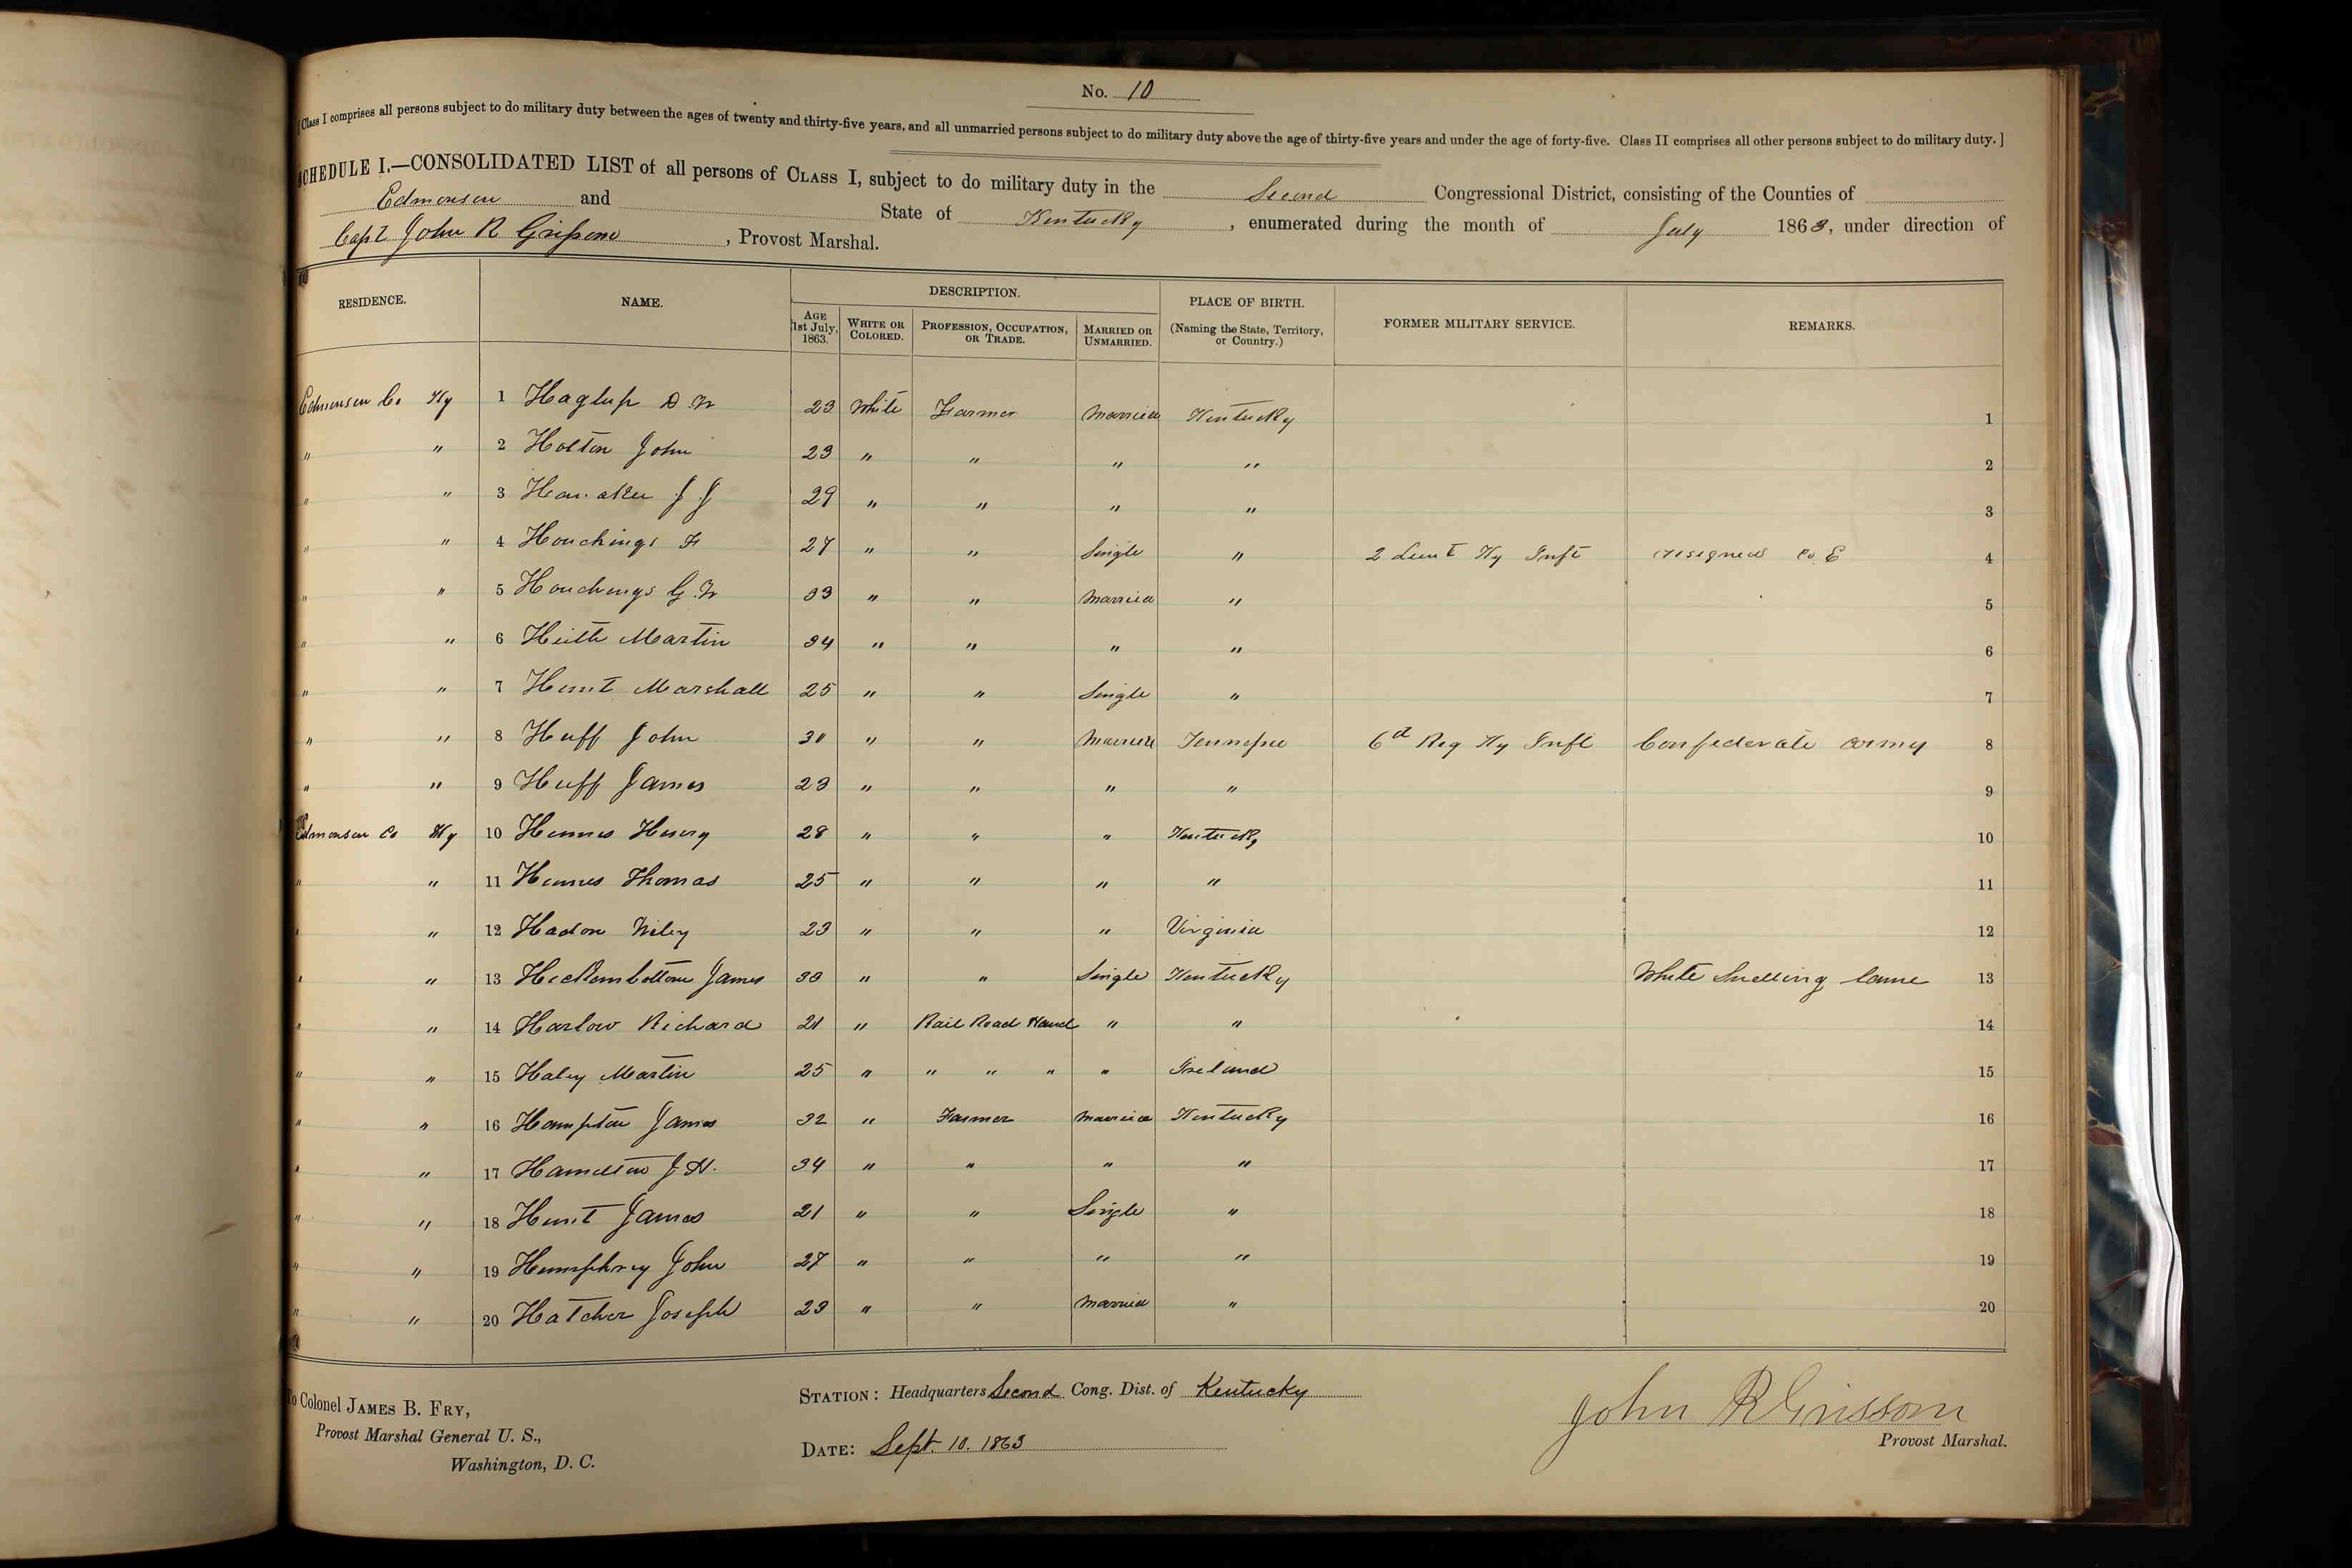 No. 10
[Class I comprises all persons subject to do military duty between the ages of twenty and thirty-five years, and all unmarried persons subject to do military duty above the age of thirty-five years and under the age of forty-five. Class II comprises all other persons subject to do military duty.]
SCHEDULE I.—CONSOLIDATED LIST of all persons of CLASS I, subject to do military duty in the Second Congressional District, consisting of the Counties of
Edmonson and State of Kentucky, enumerated during the month of July 1863, under direction of
Capt John R Grissom, Provost Marshal.
RESIDENCE. NAME. DESCRIPTION. PLACE OF BIRTH. (Naming the State, Territory, or Country.) FORMER MILITARY SERVICE. REMARKS.
AGE 1st July, 1863. WHITE OR COLORED. PROFESSION, OCCUPATION, OR TRADE. MARRIED OR UNMARRIED.
Edmonson Co Ky 1 Haglup D. W 23 White Farmer Married Kentucky 1
" " 2 Holton John 23 " " " " 2
" " 3 J J 29 " " " " 3
" " 4 Houchings F 27 " " Single " 2 Lieut Ky Inft resigned Co. E 4
" " 5 Houchings G. W 33 " " Married " 5
" " 6 Hieth Martin 34 " " " " 6
" " 7 Hunt Marshall 25 " " Single " 7
" " 8 Huff John 30 " " Married Tennessee 6d Reg Ky Inft Confederate army 8
" " 9 Huff James 23 " " " " 9
Edmonson Co Ky 10 Hennes Henry 28 " " " Kentucky 10
" " 11 Hennes Thomas 25 " " " " 11
" " 12 Hadon Wiley 23 " " " Virginia 12
" " 13 Hickembottom James 30 " " Single Kentucky White Swelling lame 13
" " 14 Harlow Richard 21 " Rail Road Hand " " 14
" " 15 Haley Martin 25 " " " " " Ireland 15
" " 16 Hampton James 32 " Farmer Married Kentucky 16
" " 17 Hamelton J. H. 34 " " " " 17
" " 18 Hunt James 21 " " Single " 18
" " 19 Humphrey John 27 " " " " 19
" " 20 Hatcher Joseph 23 " " Married " 20
To Colonel JAMES B. FRY,
Provost Marshal General U. S.,
Washington, D. C.
STATION: Headquarters Second Cong. Dist. of Kentucky
DATE: Sept. 10. 1863
John R Grissom
Provost Marshal.